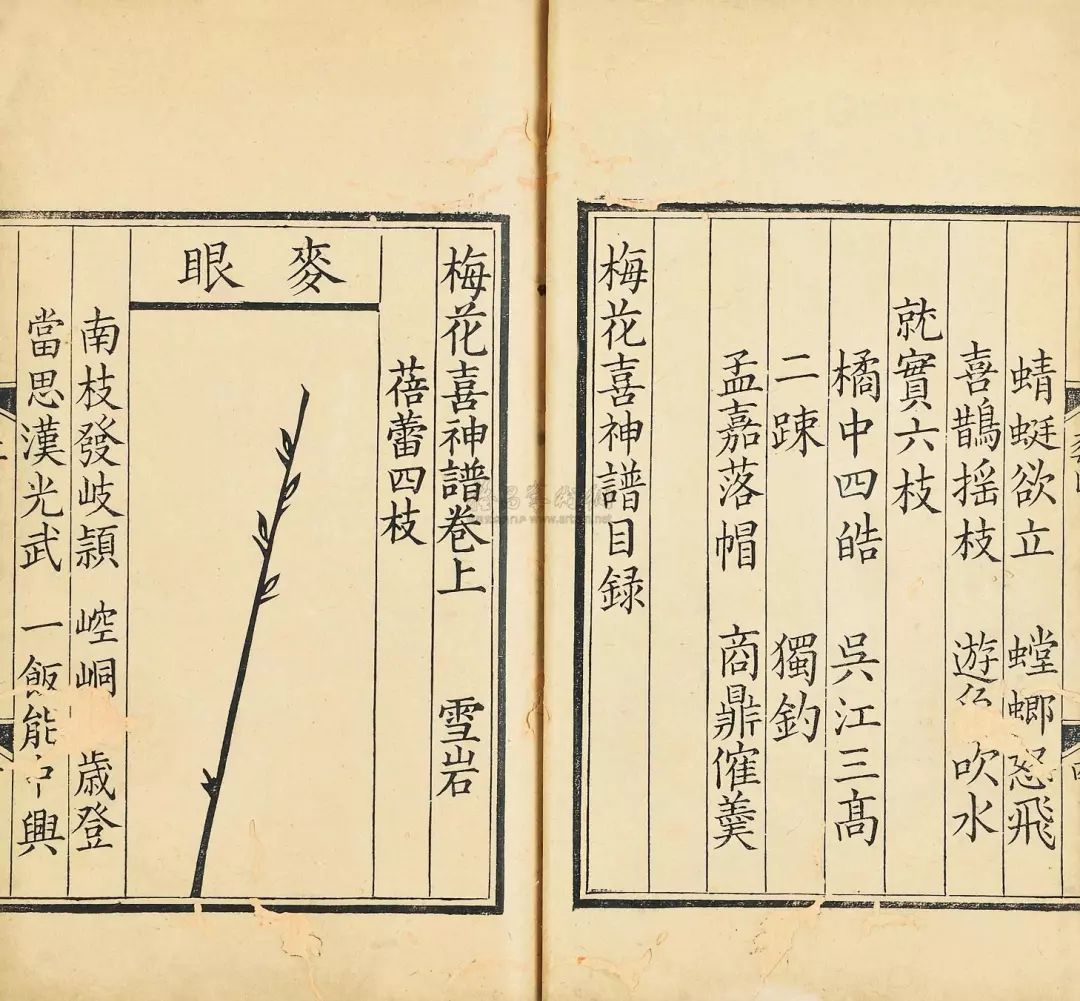 蜻蜓欲立 螳螂怒飛
喜鵲揺枝 遊 吹水
就實六枝
橘中四皓 吳江三髙
二踈 獨釣
孟嘉落帽 商鼎催羮
梅花喜神譜目録
梅花喜神譜卷上 雪岩
蓓蕾四枝
麥眼
南枝發岐頴 崆峒 歳登
當思漢光武 一飯能中興